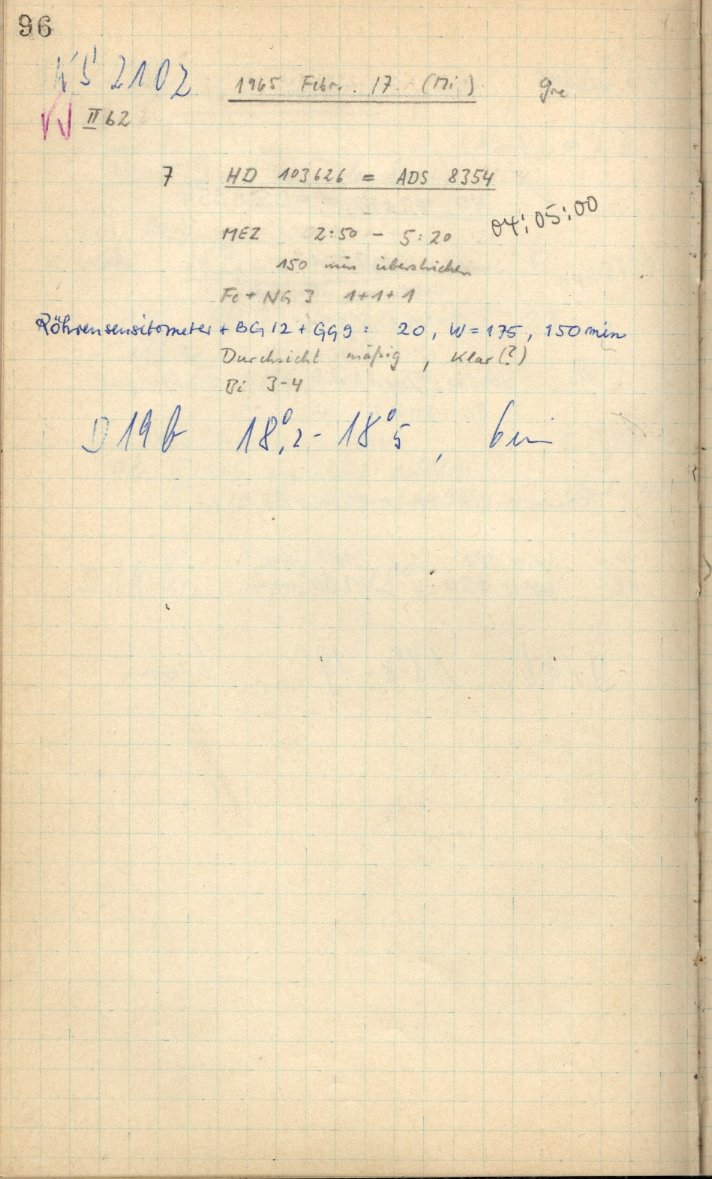 96
KS 2102 1965 Febr. 17. (Mi) Gre
II 62
7 HD 103626 = ADS 8354
04:05:00
MEZ 2:50 - 5:20
150 min überstrichen
Fe + NG 3 1+1+1
Röhrensensitometer + BG 12 + GG 9 : 20, W = 175, 150 min
Durchsicht mäßig, klar (?)
Bi 3-4
D 19 b 18°,2 - 18°,5, 6 min